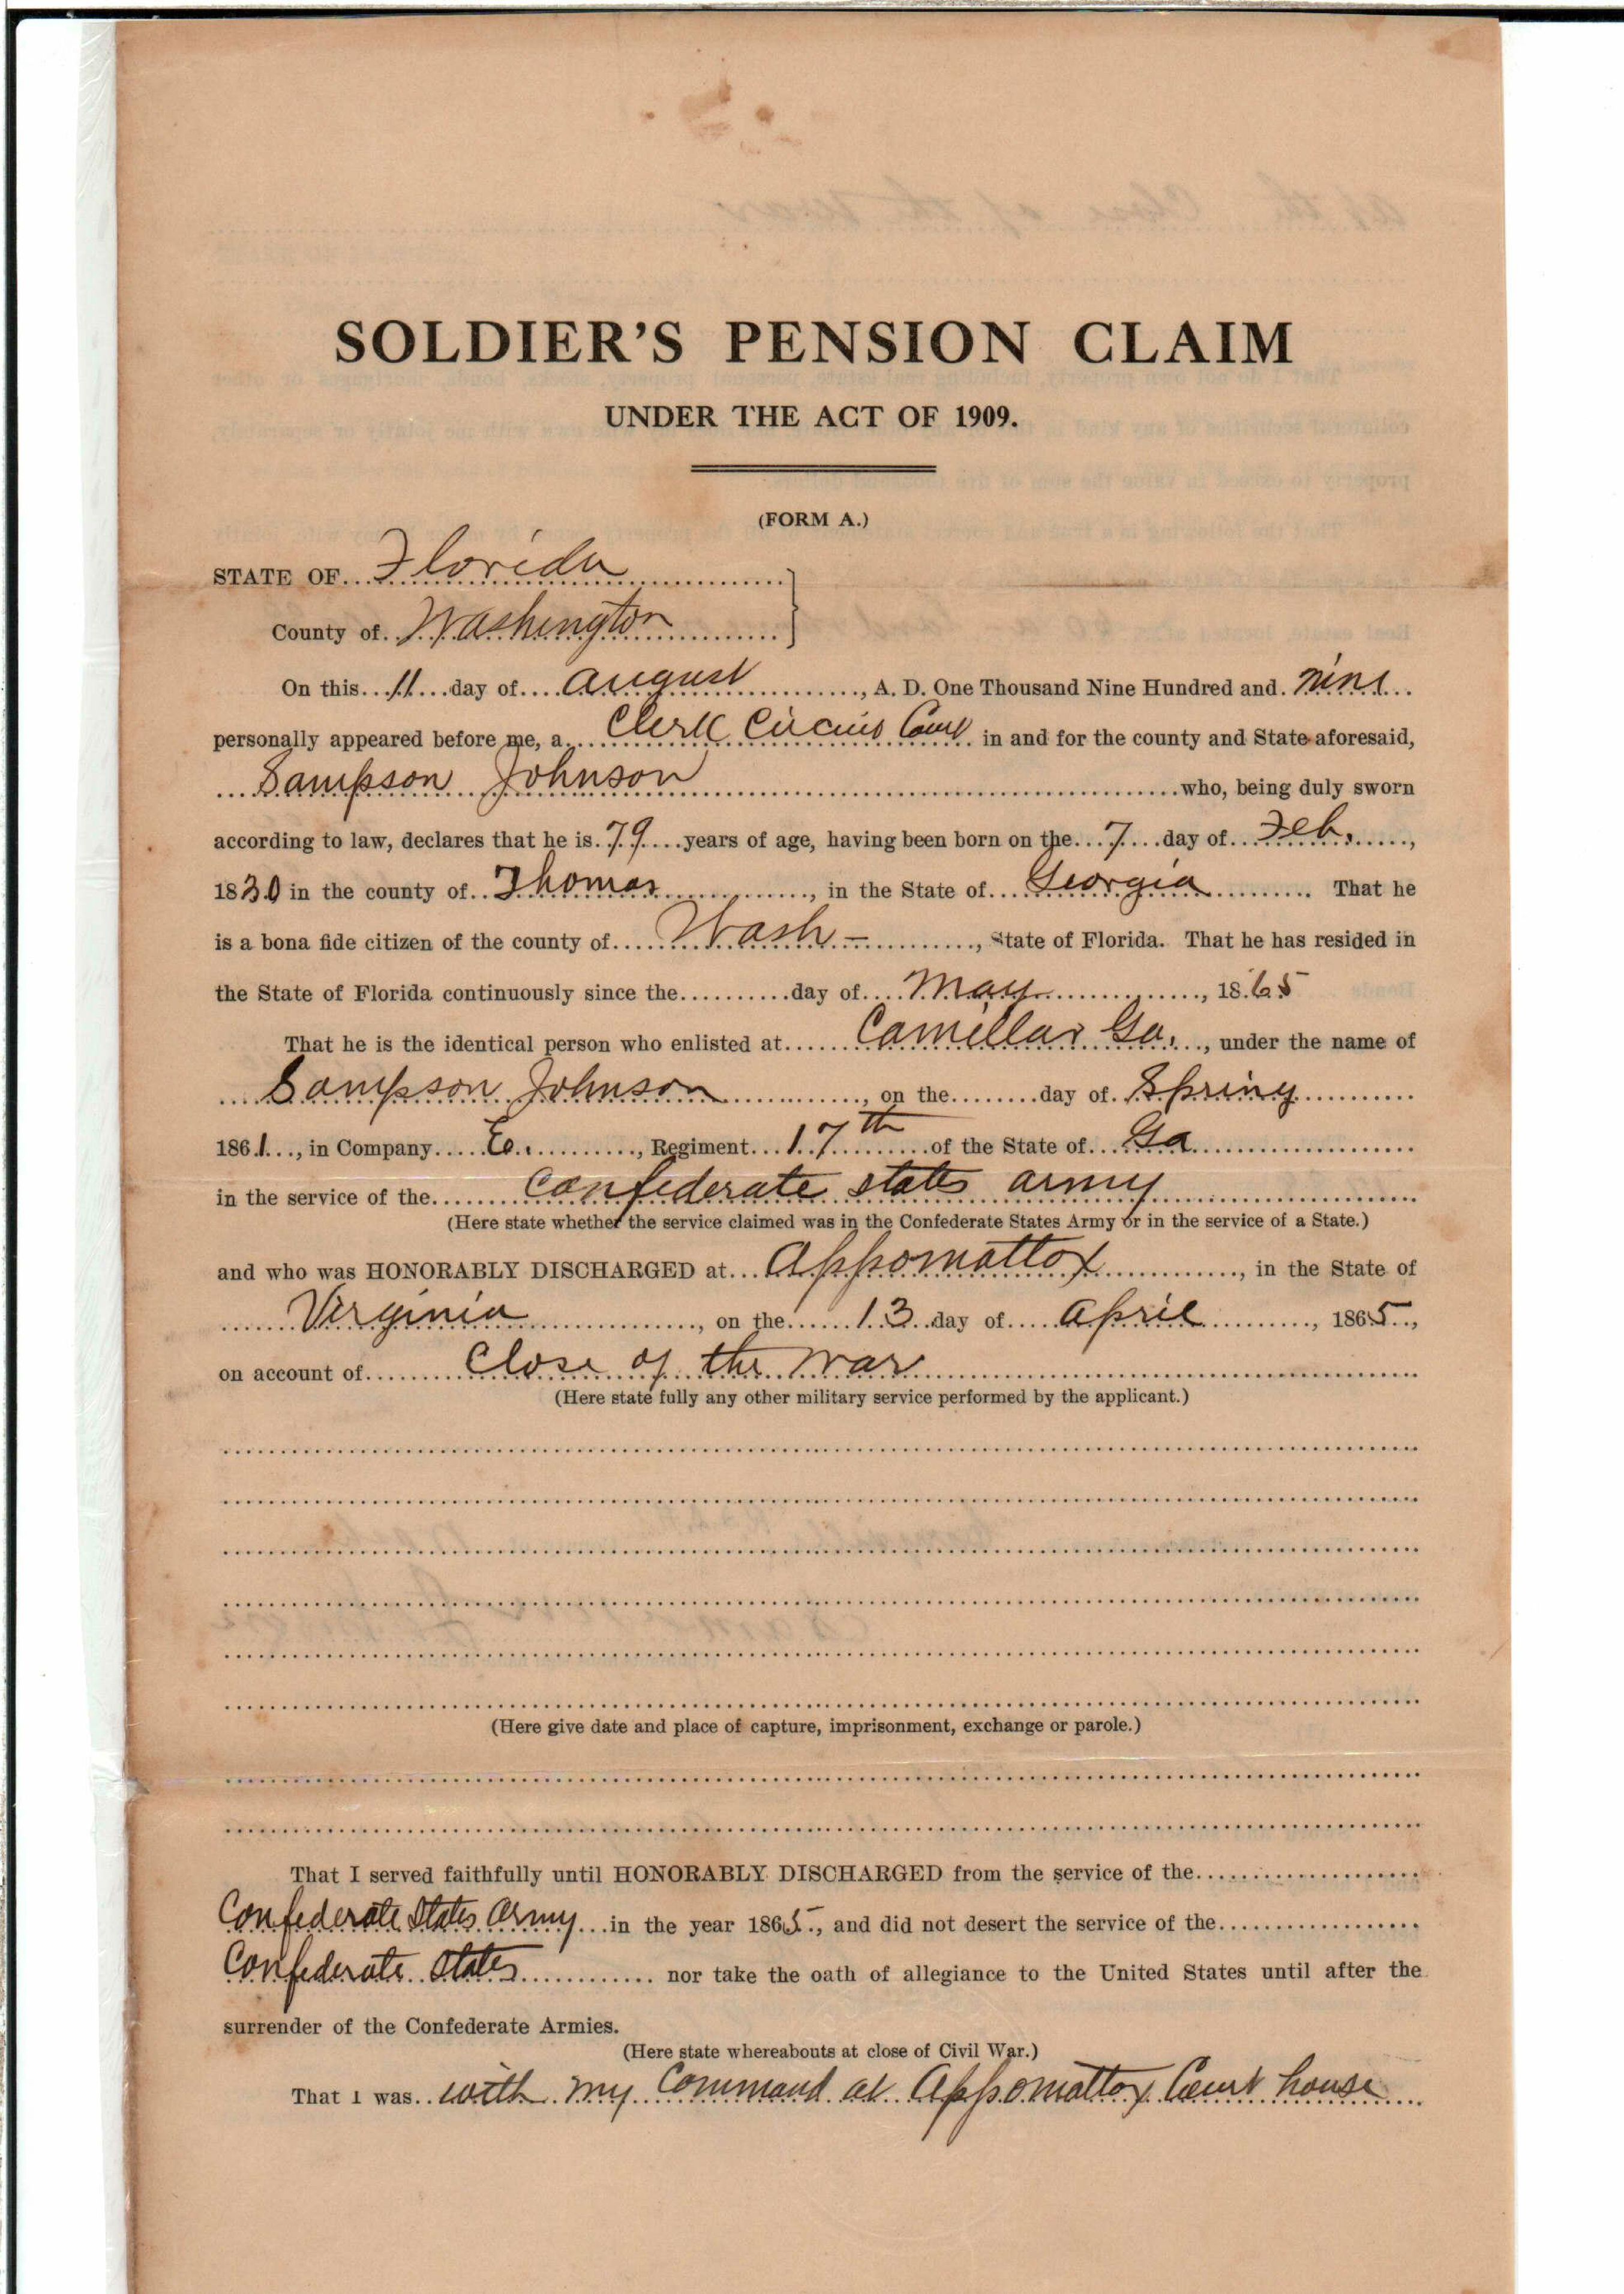 SOLDIER'S PENSION CLAIM
UNDER THE ACT OF 1909.
(FORM A.)
STATE OF Florida
County of Washington
On this 11 day of august, A. D. One Thousand Nine Hundred and nine
personally appeared before me, a Clerk Circuit Court in and for the county and State aforesaid,
Sampson Johnson who, being duly sworn
according to law, declares that he is 79 years of age, having been born on the 7 day of Feb.,
1830 in the county of Thomas, in the State of Georgia. That he
is a bona fide citizen of the county of Wash-, State of Florida. That he has resided in
the State of Florida continuously since the day of May, 1865
That he is the identical person who enlisted at Camillar Ga., under the name of
Sampson Johnson, on the day of Spring
1861, in Company E., Regiment 17th of the State of Ga
in the service of the Confederate states army
(Here state whether the service claimed was in the Confederate States Army or in the service of a State.)
and who was HONORABLY DISCHARGED at Appomattox, in the State of
Virginia, on the 13 day of April, 1865,
on account of Close of the war
(Here state fully any other military service performed by the applicant.)
(Here give date and place of capture, imprisonment, exchange or parole.)
That I served faithfully until HONORABLY DISCHARGED from the service of the
Confederate States Army in the year 1865, and did not desert the service of the
Confederate States nor take the oath of allegiance to the United States until after the
surrender of the Confederate Armies.
(Here state whereabouts at close of Civil War.)
That I was with my Command at Appomattox Court house